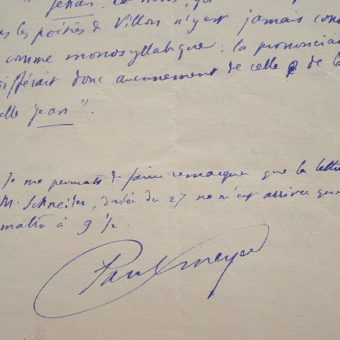 " Jehan.
les poésies de Villon n'y est jamais
comme monosyllabique : la prononcia
différait donc aucunement de celle de
elle Jean ".
Je me permets de faire remarquer que la lettre
M. Schneider, datée du 27 ne m'est arrivée que
matin à 9 ½
Paul Meyer